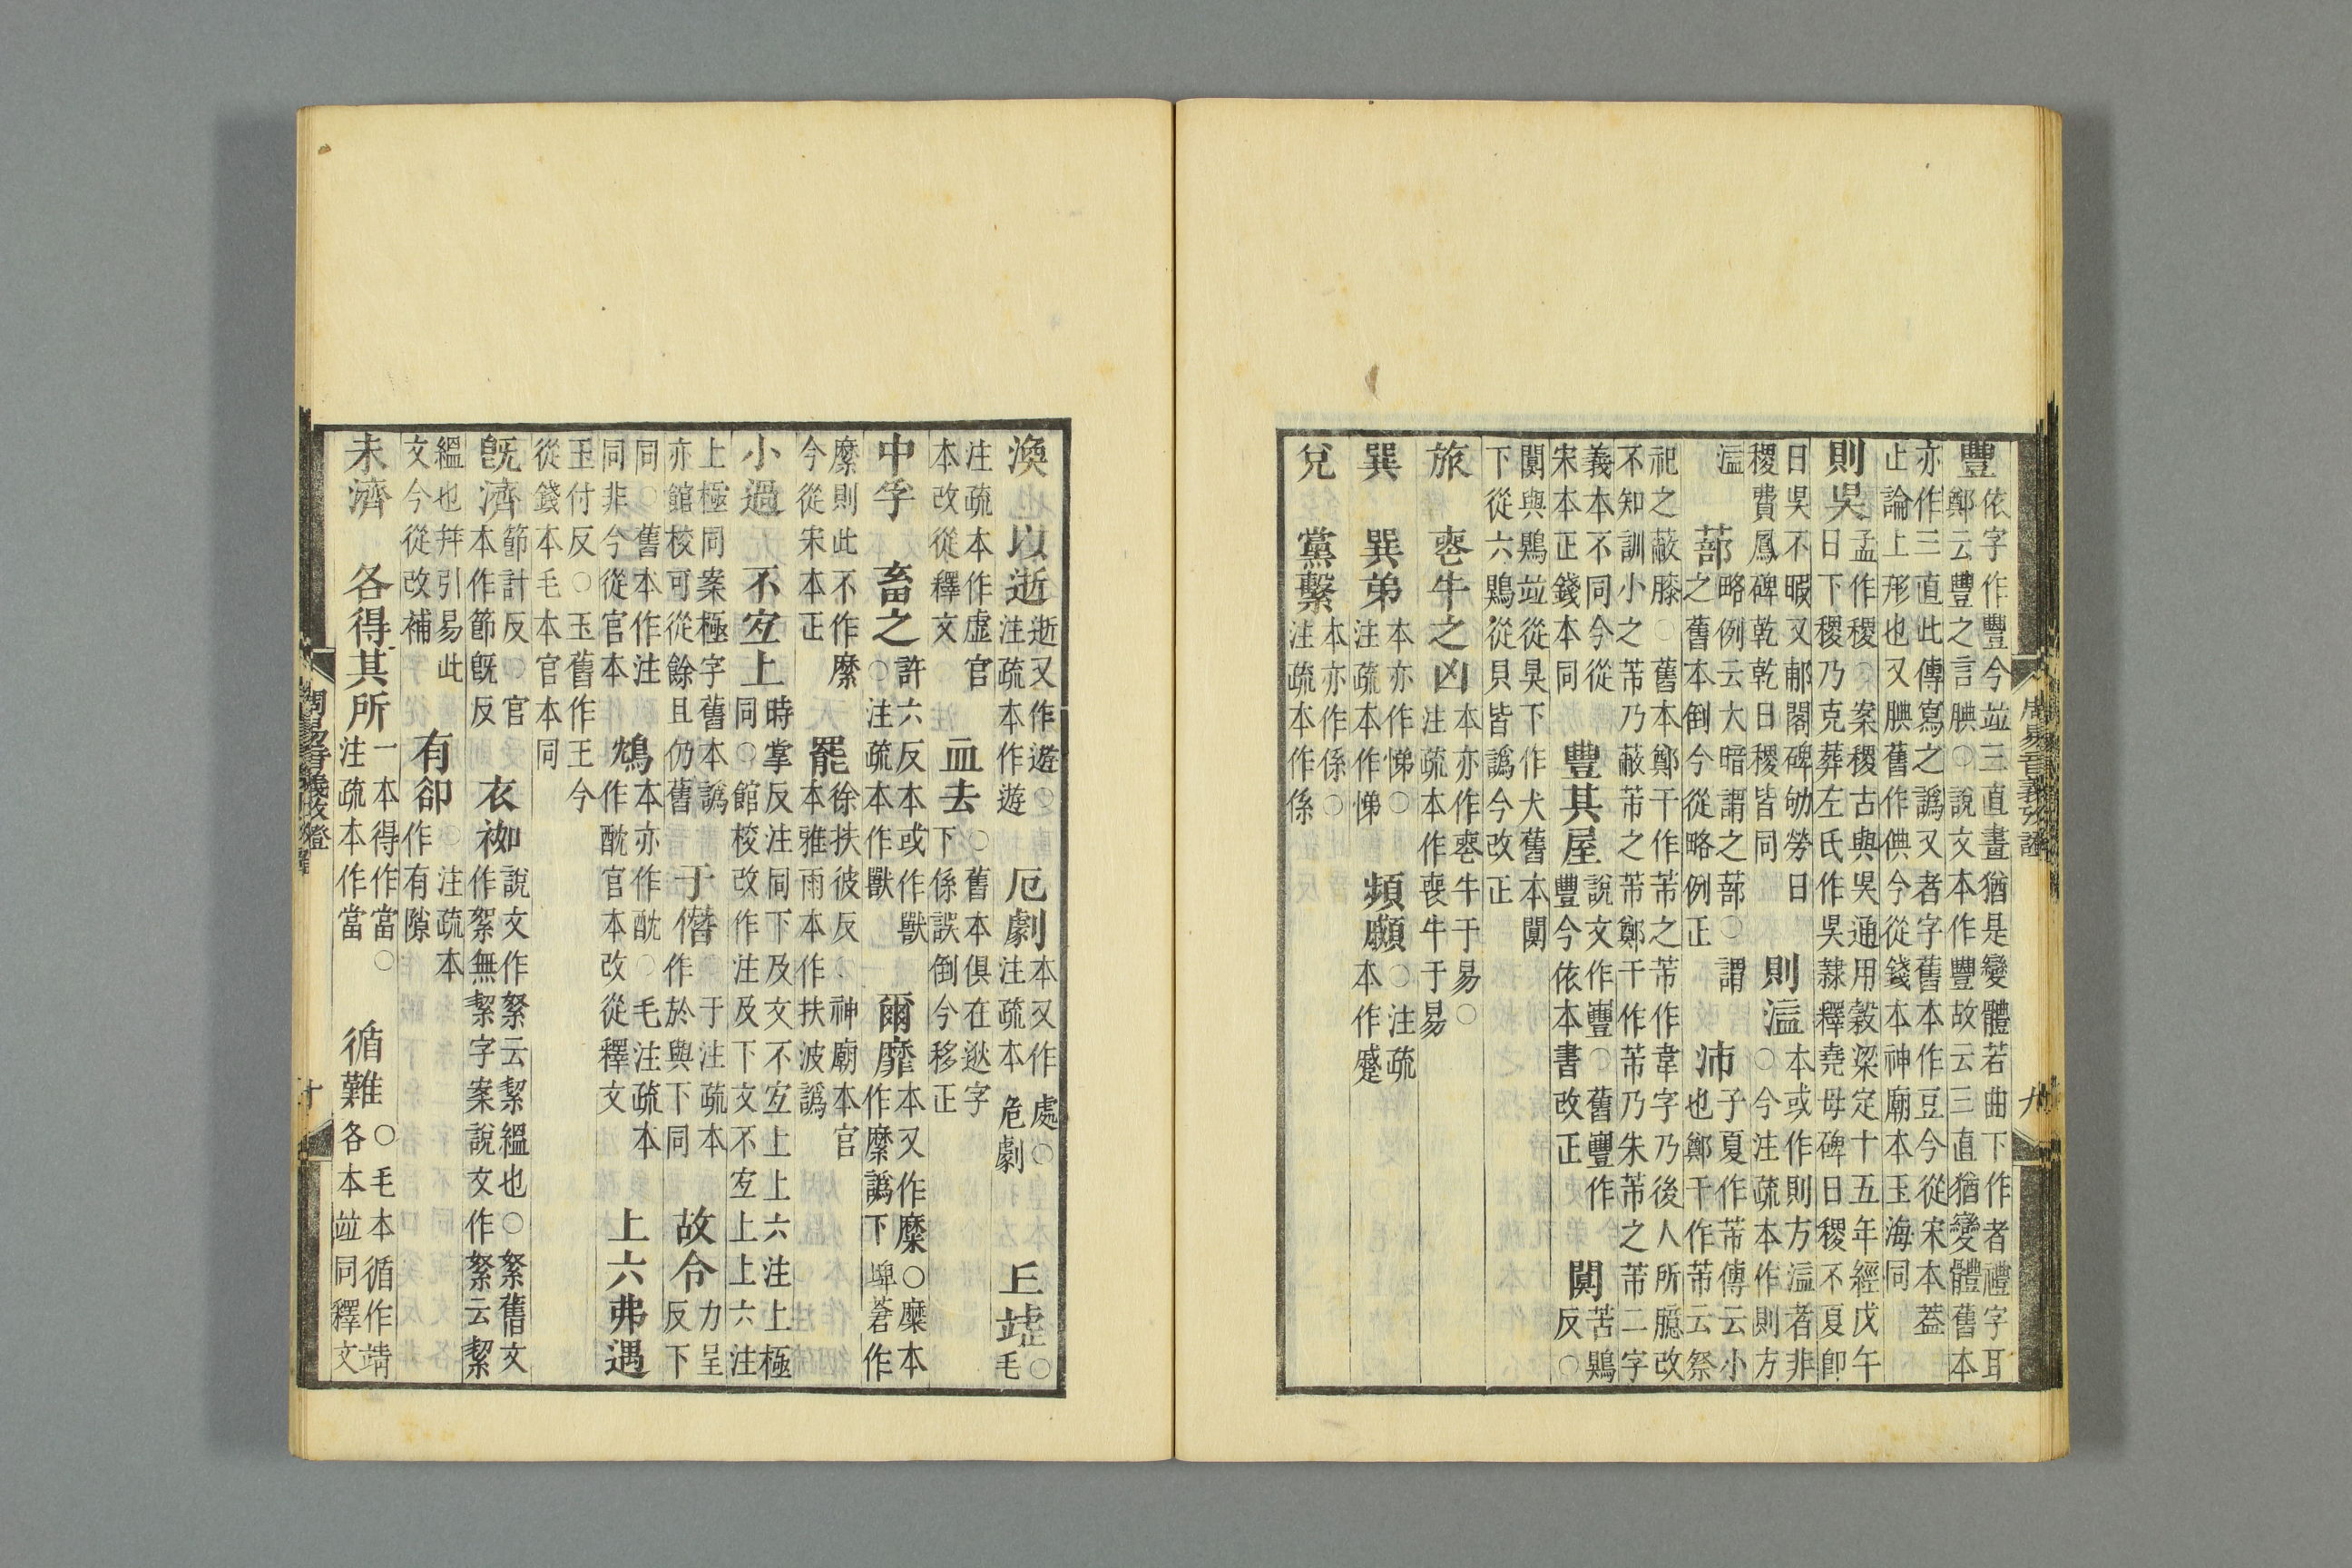 周易音義攷證 九
豐 依字作豐今竝三直畫猶是變體若曲下作者禮字耳鄭云豐之言腆○說文本作豐故云三直猶變體舊本
亦作三直此傳寫之譌又者字舊本作豆今從宋本葢止論上形也又腆舊作倎今從錢本神廟本玉海同
則吳 孟作稷○案稷古與吳通用穀梁定十五年經戊午日下稷乃克葬左氏作吳隸釋堯母碑日稷不夏卽
日吳不暇又郙閣碑劬勞日稷費鳳碑乾乾日稷皆同 則溢 本或作則方溢者非○今注疏本作則方
溢 蔀 略例云大暗謂之蔀○謂之舊本倒今從略例正 沛 子夏作芾傳云小也鄭干作芾云祭
祀之蔽膝○舊本鄭干作芾之芾作韋字乃後人所臆改不知訓小之芾乃蔽芾之芾鄭干作芾乃朱芾之芾二字
義本不同今從宋本正錢本同 豐其屋 說文作寷○舊寷作豐今依本書改正 闃 苦鶪反○
闃與鶪竝從狊下作犬舊本闃下從六鶪從貝皆譌今改正
旅 喪牛之凶 本亦作喪牛于易○注疏本作喪牛于易
巽 巽弟 本亦作悌○注疏本作悌 頻顣 ○注疏本作蹙
兌 黨繫 本亦作係○注疏本作係
渙 以逝 逝又作遊○注疏本作遊 厄劇 本又作處○注疏本危劇 丘墟 ○毛
注疏本作虛官本改從釋文 血去 ○舊本俱在逖字下係誤倒今移正
中孚 畜之 許六反本或作獸○注疏本作獸 爾靡 本又作縻○縻本作縻譌下埤蒼作
縻則此不作縻今從宋本正 罷 徐扶彼反○神廟本官本雅雨本作扶波譌
小過 不宜上 時掌反注同下及文不宜上上六注上極同○館校改作注及下文不宜上上六注
上極同案極字舊本譌亦館校可從餘且仍舊 于僭 于注疏本作於與下同 故令 力呈反下
同○舊本作注同非今從官本 鴆 本亦作酖○毛注疏本作酖官本改從釋文 上六弗遇
玉付反○玉舊作王今從錢本毛本官本同
旣濟 節計反○官本作節旣反 衣袽 說文作絮云絜縕也○絮舊文作絮無絜字案說文作絮云絜
縕也幷引易此文今從改補 有卻 ○注疏本作有隙
未濟 各得其所 一本得作當○注疏本作當 循難 ○毛本循作靖各本竝同釋文
周易音義攷證 十